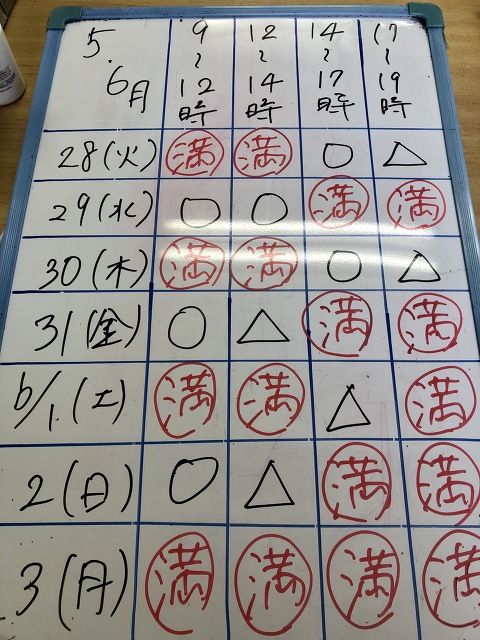 5.6月 9~12時 12~14時 14~17時 17~19時
28(火) 満 満 ○ △
29(水) ○ ○ 満 満
30(木) 満 満 ○ △
31(金) ○ △ 満 満
6/1(土) 満 満 △ 満
2(日) ○ △ 満 満
3(月) 満 満 満 満